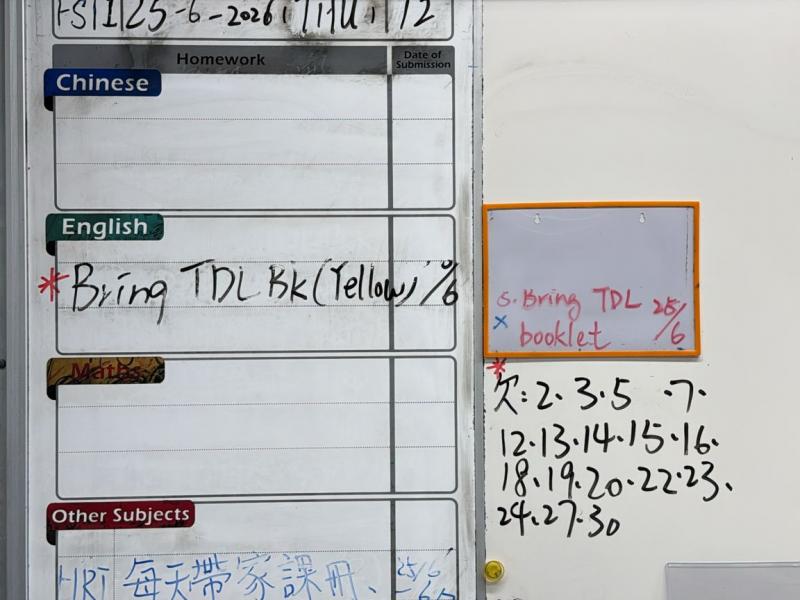 25-6-2026, THU, 12
Homework
Date of
Submission
Chinese
English
* Bring TDL BK (Yellow)
Maths
Other Subjects
HRT 每天帶家課冊、 25/6
6. Bring TDL 25/6
x booklet
*
欠: 2. 3. 5 .7.
12.13.14.15.16.
18.19.20.22.23.
24.27.30